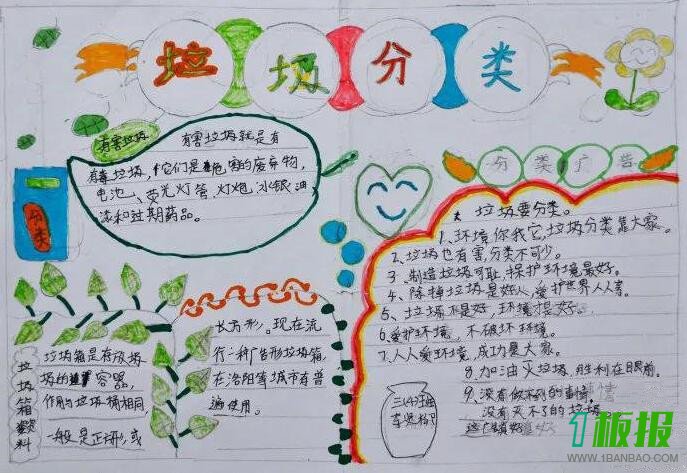 垃圾分类
有害垃圾
有害垃圾就是有
有毒垃圾,它们是危害的废弃物,
电池、荧光灯管、灯炮、水银温
和过期药品。
分类
分类广告
垃圾要分类。
1、环境你我它,垃圾分类靠大家。
2、垃圾也有害,分类不可少。
3、制造垃圾可耻,保护环境最好。
4、除掉垃圾是好人,爱护世界人人事。
5、垃圾不是好,环境才是好。
6、爱护环境,不破坏环境。
7、人人爱环境,成功是大家。
8、加油灭垃圾,胜利在眼前。
9、没有做不到的事情,
没有灭不了的垃圾
三(4)班
垃圾箱资料
垃圾箱是存放垃
圾的容器,
作用与垃圾桶相同,
一般是正方形,或
长方形。现在流
行一种广告形垃圾箱,
在洛阳等城市有普
遍使用。
1板报
WWW.1BANBAO.COM